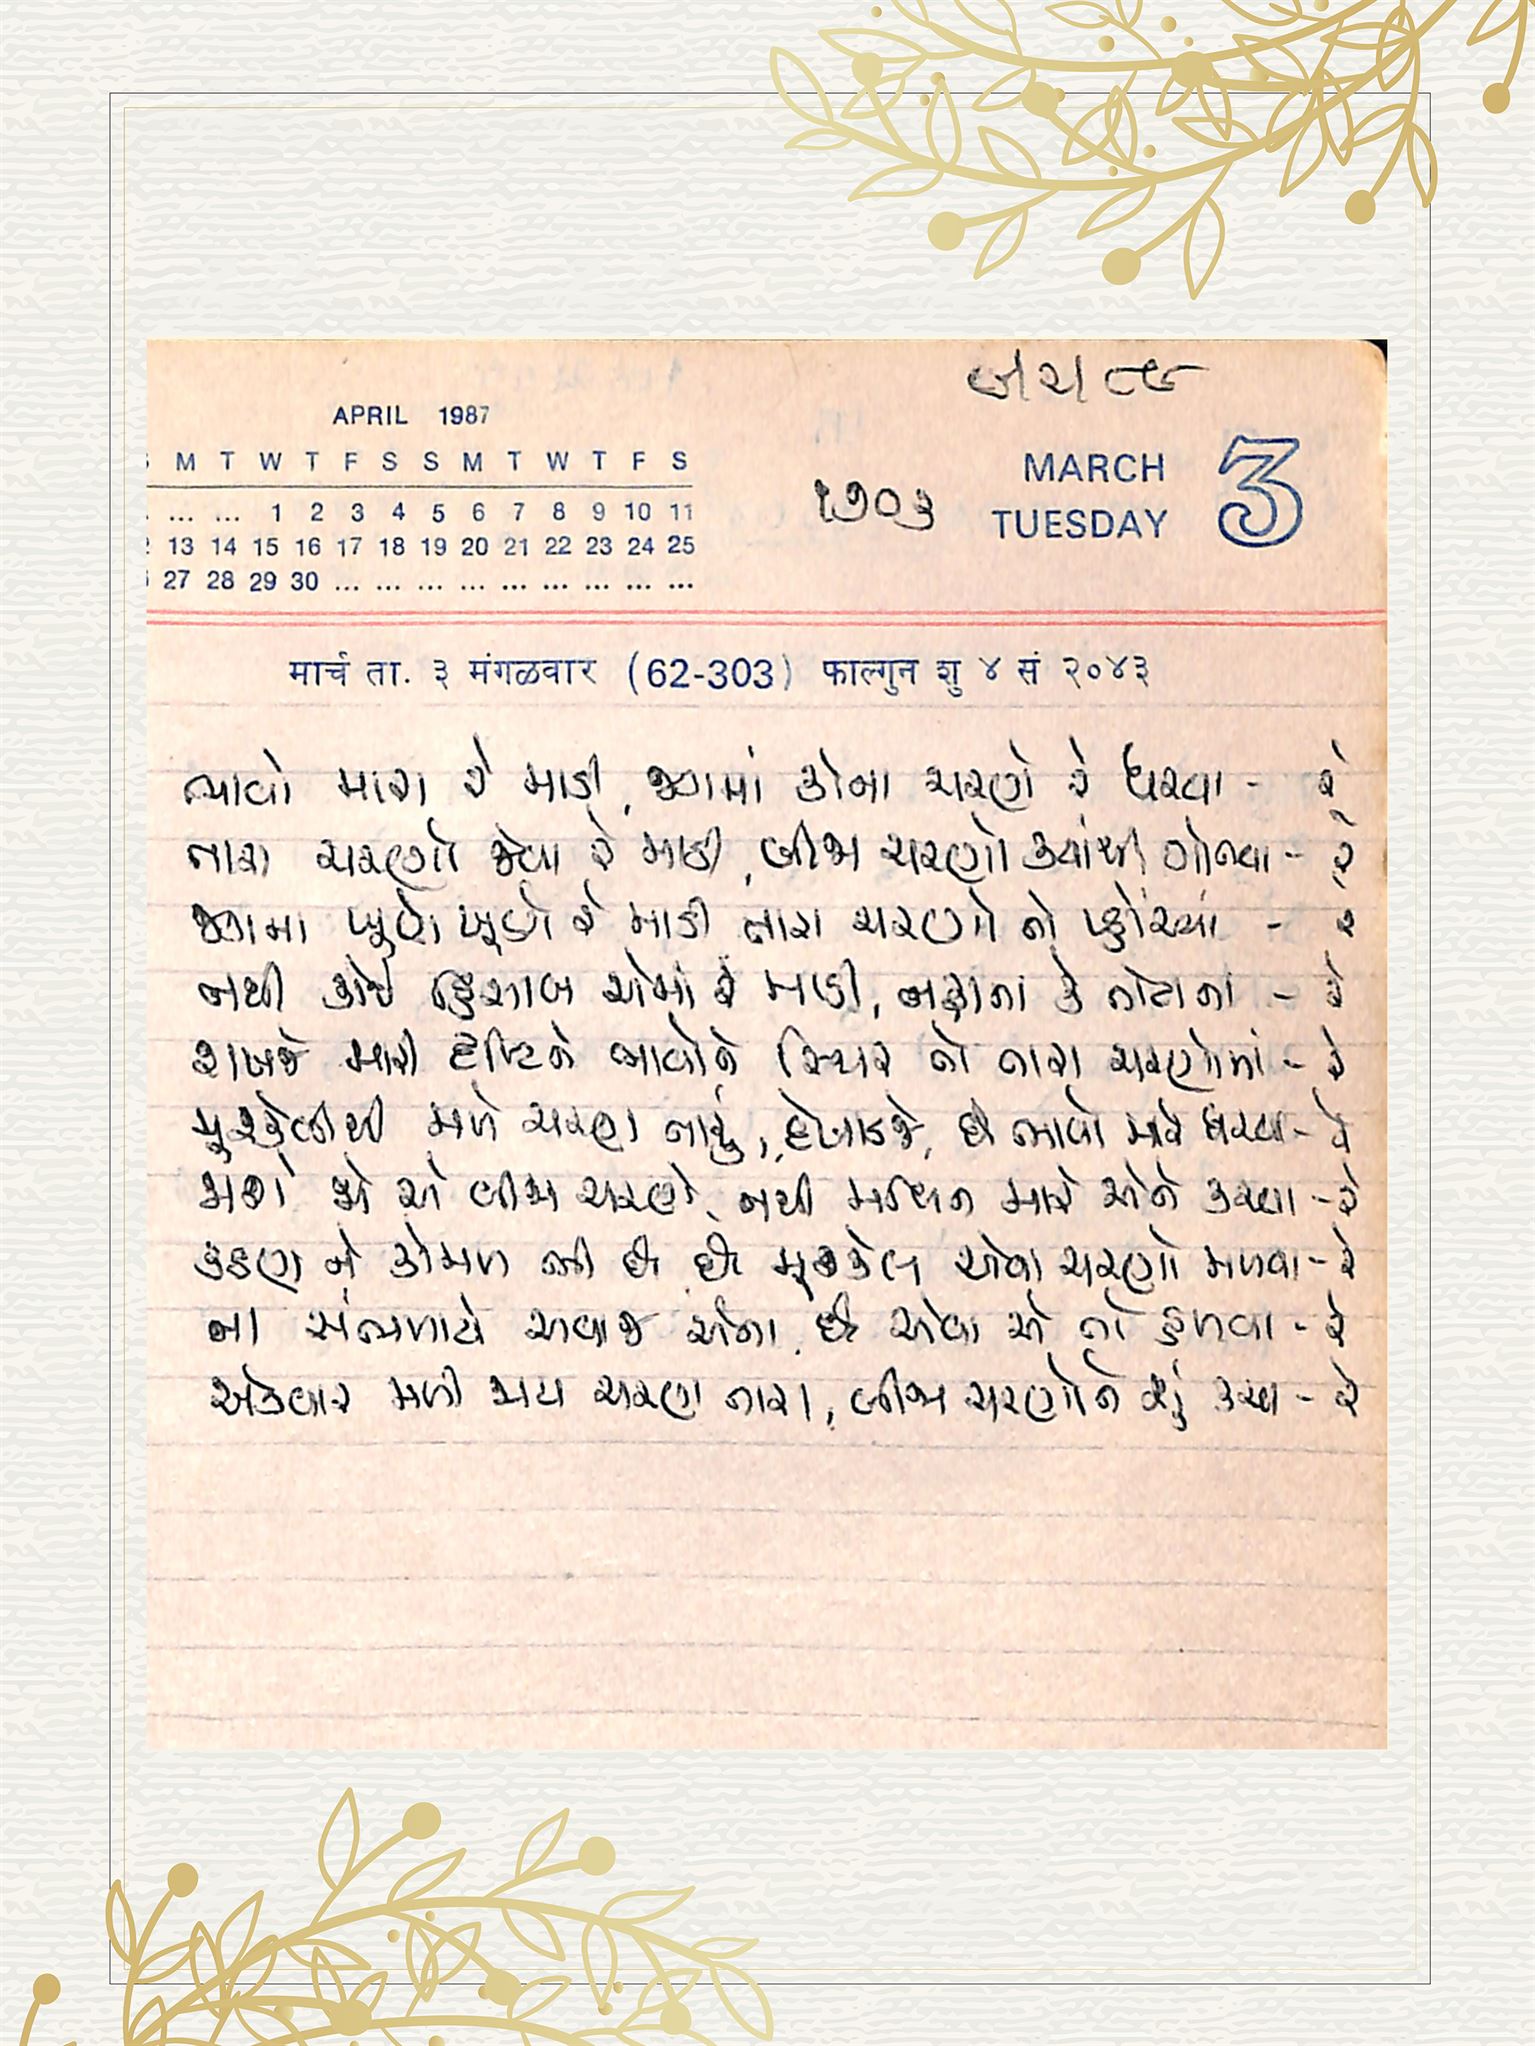 APRIL 1987
M T W T F S S M T W T F S
... ... 1 2 3 4 5 6 7 8 9 10 11
13 14 15 16 17 18 19 20 21 22 23 24 25
27 28 29 30 ... ... ... ... ... ... ... ... ...
૧૭૦૩
MARCH 3
TUESDAY
मार्च ता. ३ मंगळवार (62-303) फाल्गुन शु ४ सं २०४३
ભાવો મારા રે માડી, જગમાં કોના ચરણે રે ધરવા - રે
તારા ચરણો જેવા રે માડી, બીજા ચરણો ક્યાંથી ગોતવા - રે
જગમાં ખૂણે ખૂણે રે માડી તારા ચરણો તો - રે
નથી કોઈ હિસાબ એમાં રે માડી, નફાના કે તોટાના - રે
રાખજે મારી દૃષ્ટિને ભાવોને સ્થિર તો તારા ચરણોમાં - રે
મુશ્કેલીથી મળે ચરણ તારું, દેખાડજે, છે ભાવો મારે ધરવા - રે
મળશે જો એ બીજા ચરણે, નથી મલિન મારે એને કરવા - રે
કઠણ ને કોમળ ભી છે, છે મુશ્કેલ એવા ચરણો મળવા - રે
ના સંભળાયે અવાજ એના, છે એવા એ તો હળવા - રે
એકવાર મળી જાય ચરણ તારા, બીજા ચરણોને શું કરવા - રે